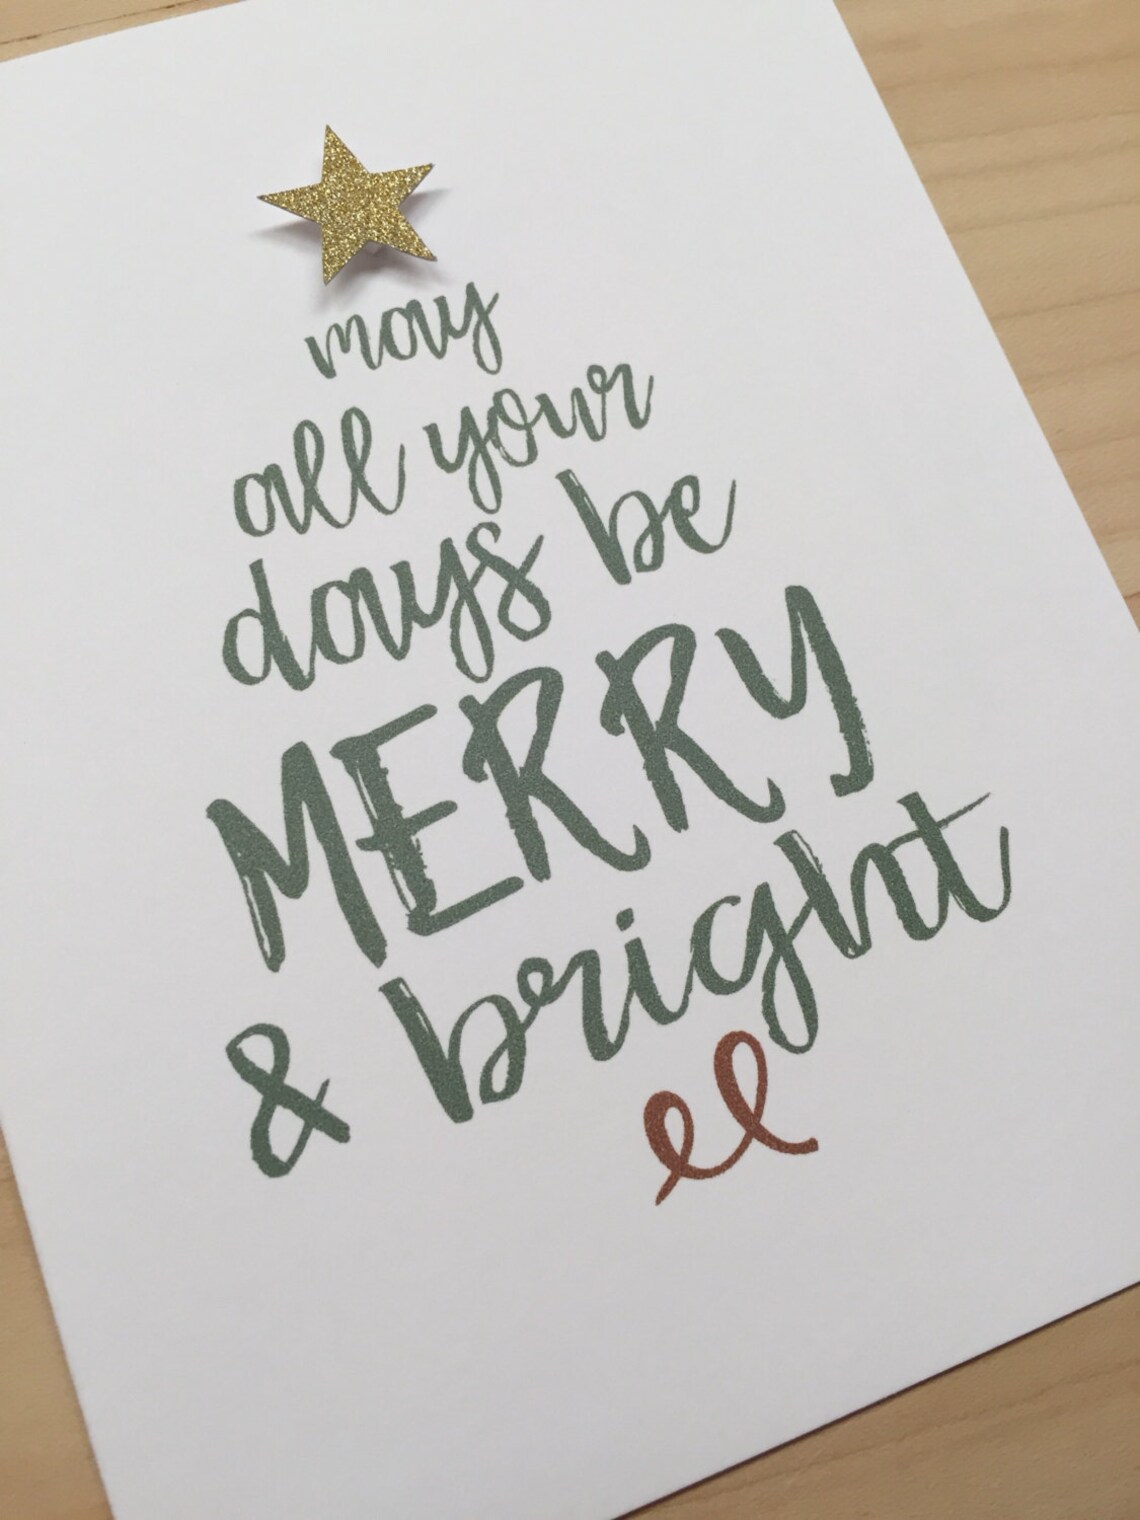 may
all your
days be
MERRY
& bright